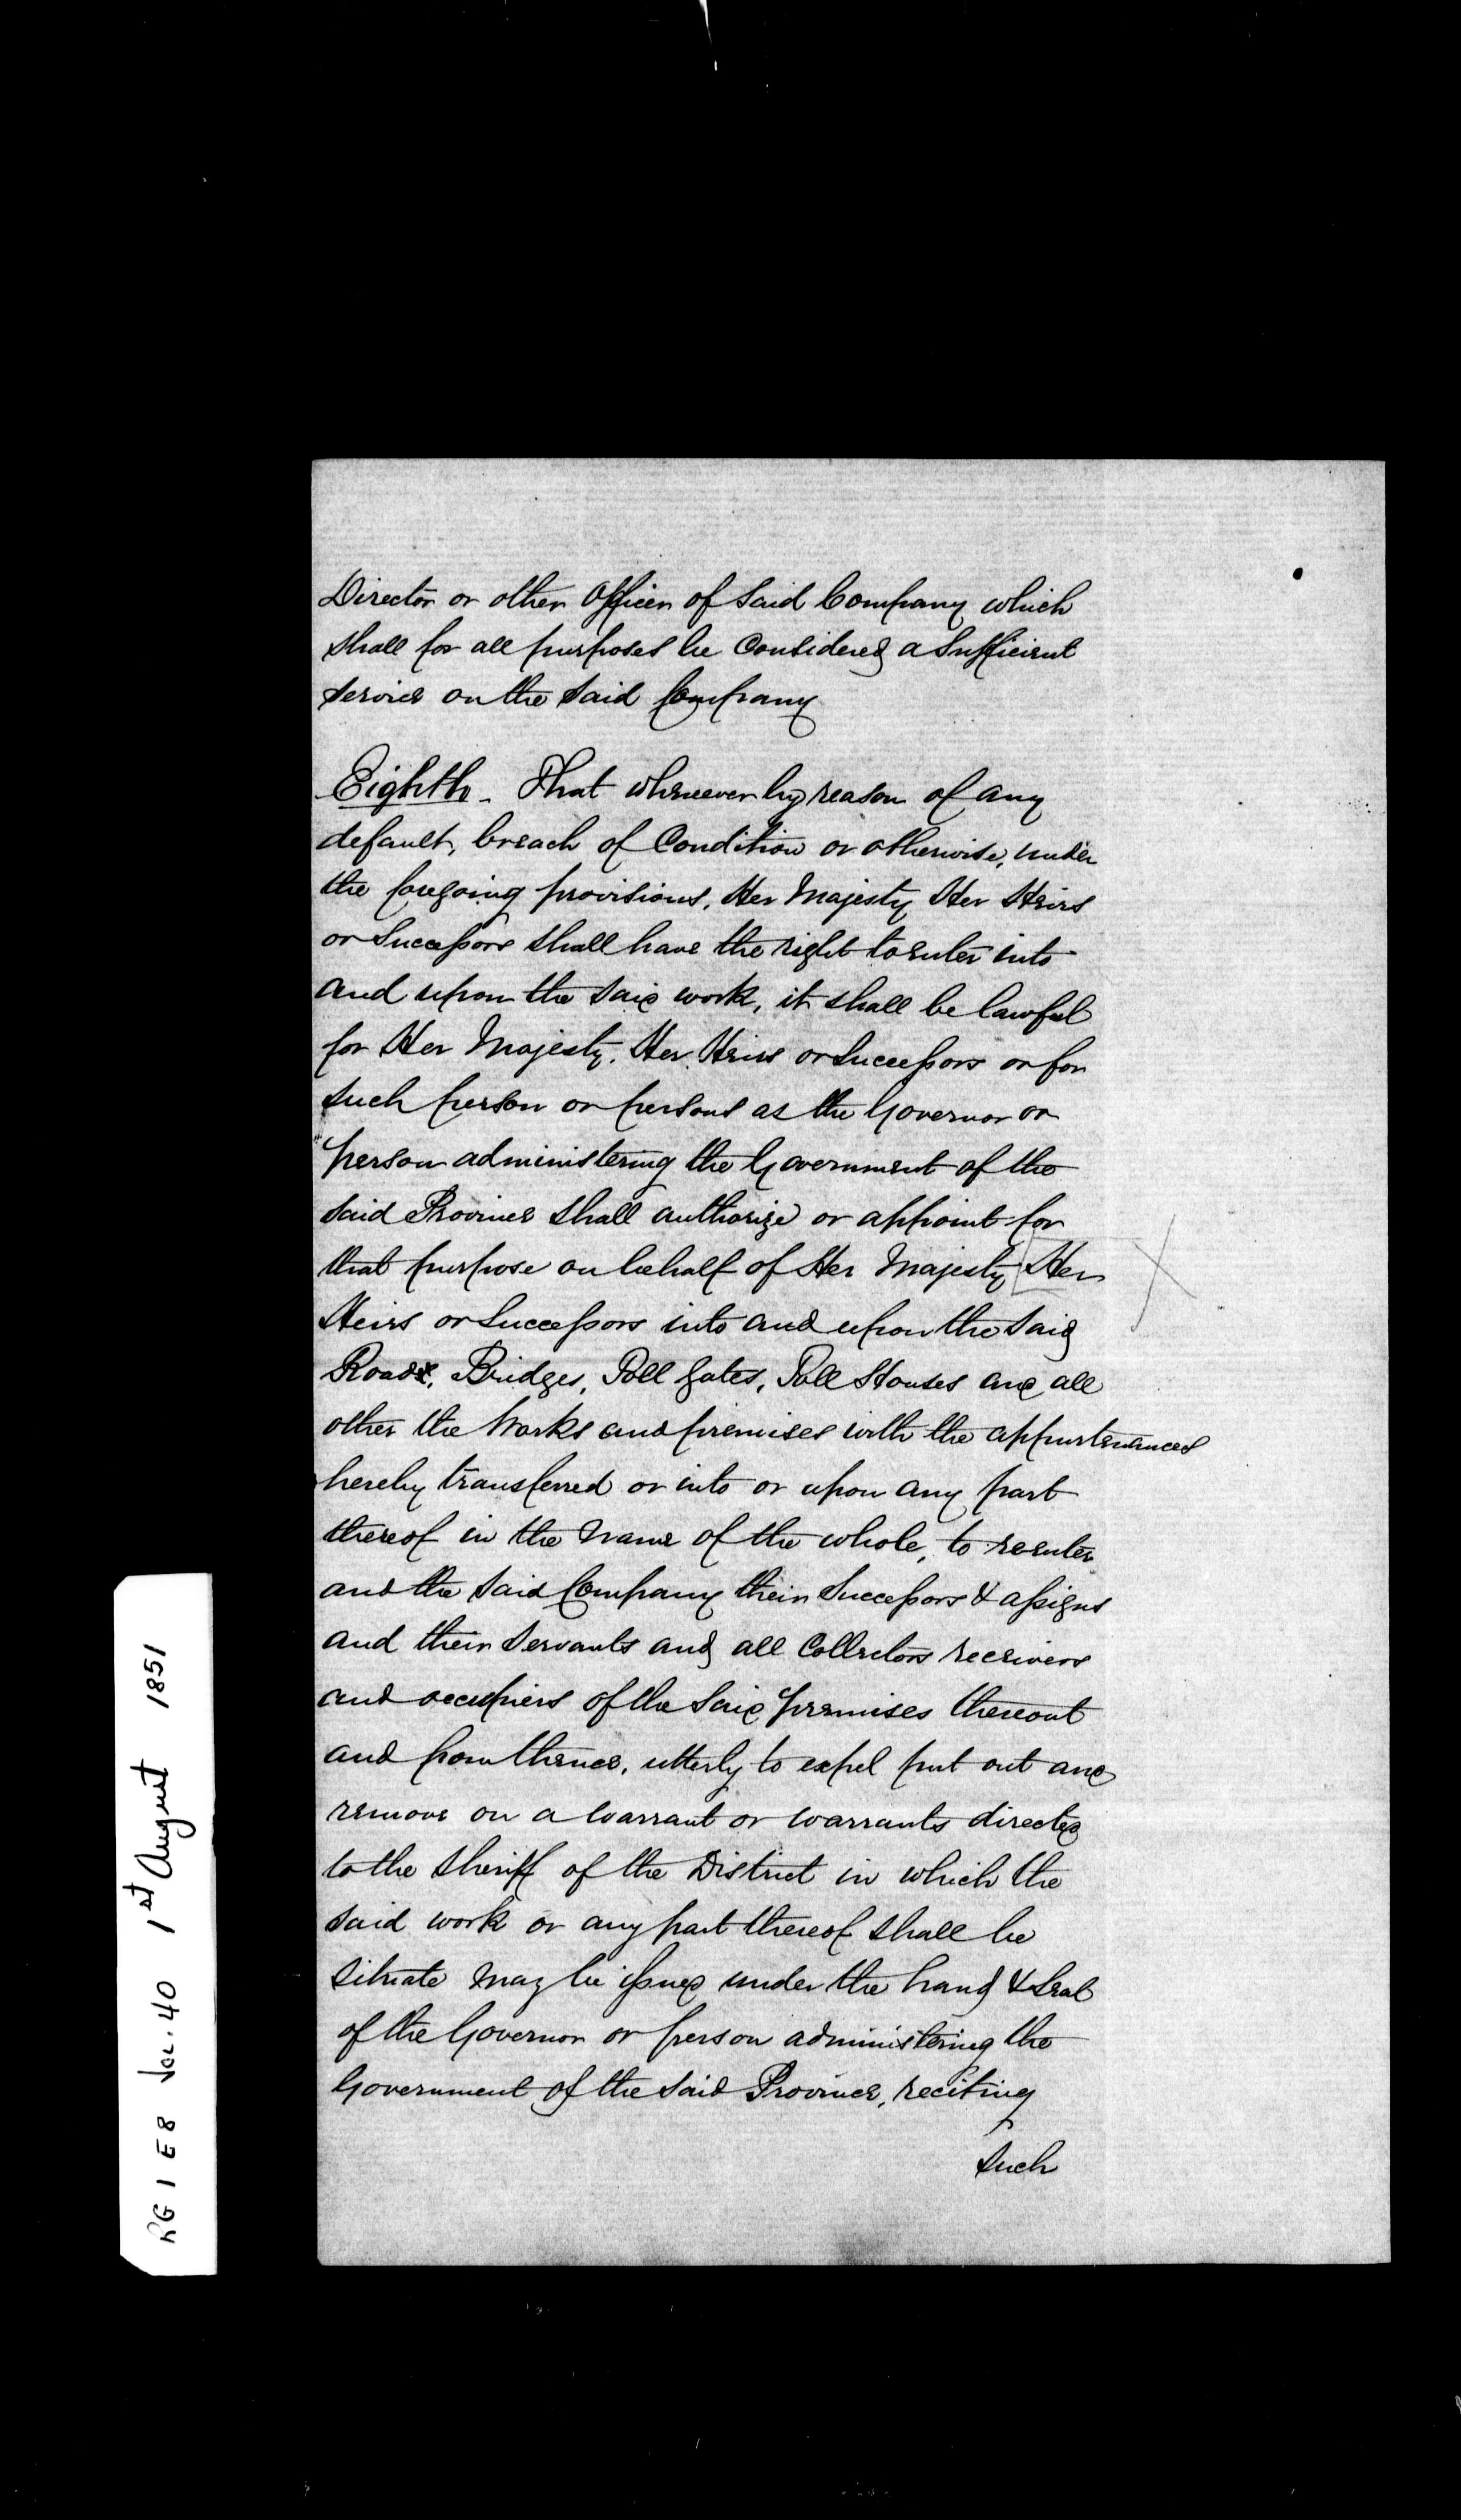 Director or other Officer of said Company which
shall for all purposes be Considered a Sufficient
service on the said Company
Eighth - That whenever by reason of any
default, breach of Condition or otherwise, under
the foregoing provisions, Her Majesty Her Heirs
or Successors shall have the right to enter into
and upon the said work, it shall be lawful
for Her Majesty, Her Heirs or Successors or for
such person or persons as the Governor or
person administering the Government of the
said Province shall authorize or appoint for
that purpose on behalf of Her Majesty Her
Heirs or Successors into and upon the said
Roads, Bridges, Toll Gates, Toll Houses and all
other the Works and premises with the appurtenances
hereby transferred or into or upon any part
thereof in the Name of the whole, to reenter
and the said Company their Successors & assigns
and their servants and all Collectors receivers
and occupiers of the said premises thereout
and from thence, utterly to expel put out and
remove on a Warrant or Warrants directed
to the Sheriff of the District in which the
said work or any part thereof shall be
situate may be issued under the hand & seal
of the Governor or person administering the
Government of the said Province, reciting
such
RG 1 E 8 Vol. 40 1st August 1851